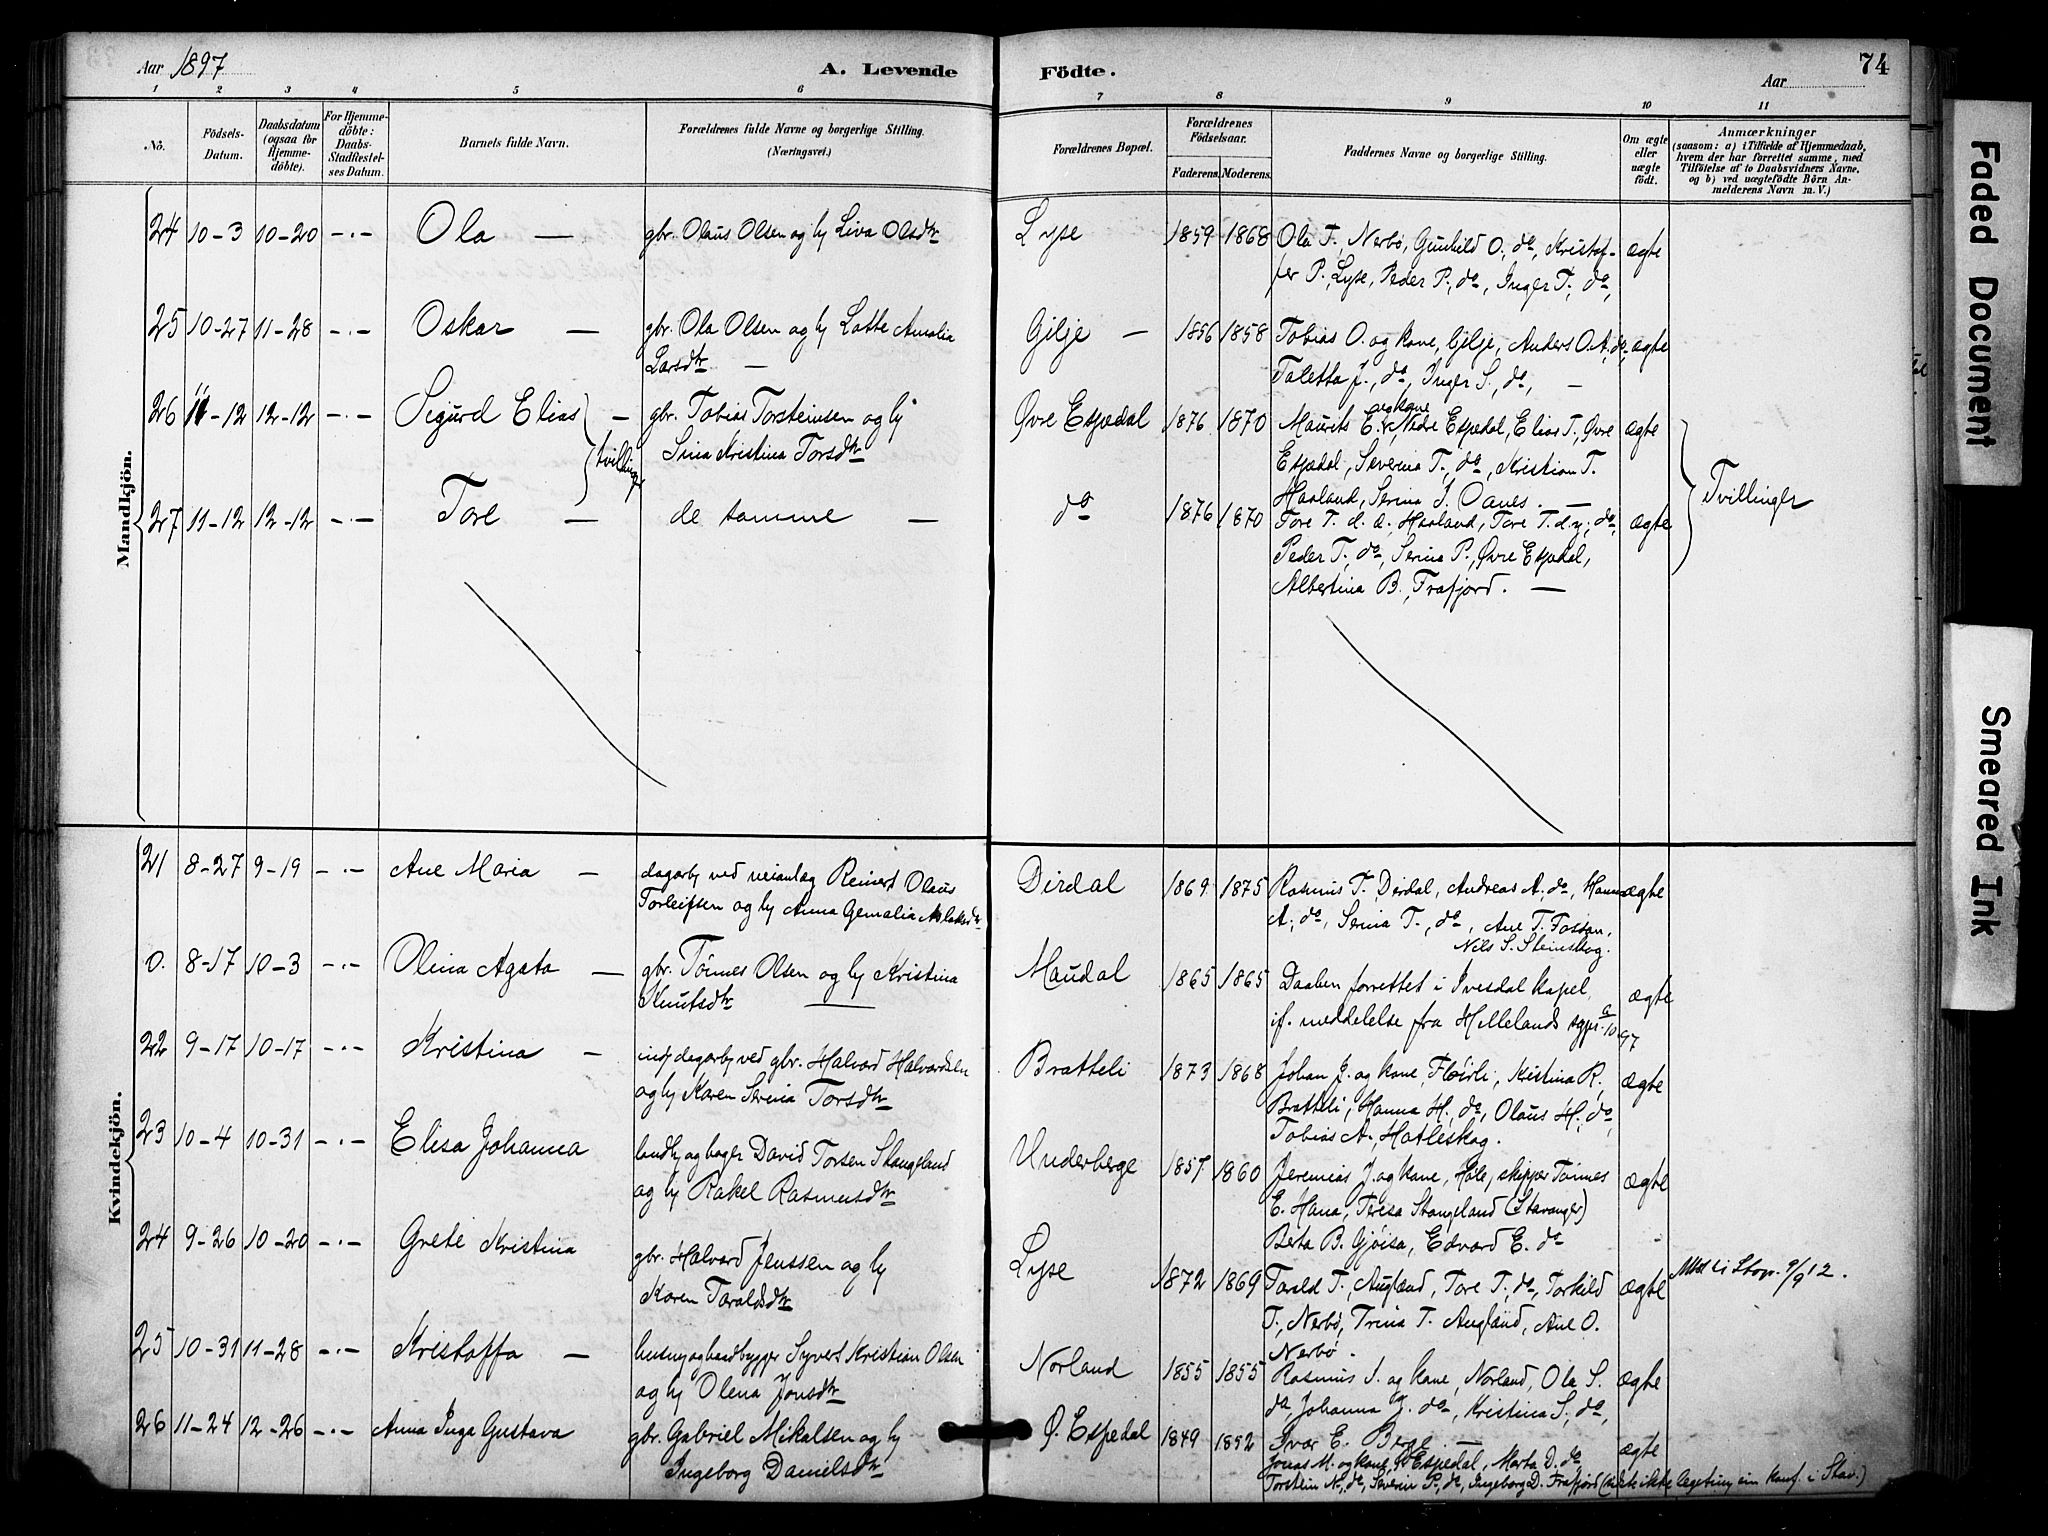 Aar 1897
A. Levende
Födte.
Aar
74
1 2 3 4 5 6 7 8 9 10 11
No.
Födsels-
Datum.
Daabsdatum
(ogsaa for
Hjemme-
döbte).
For Hjemme-
döbte:
Daabs-
Stadfæstel-
ses Datum.
Barnets fulde Navn.
Forældrenes fulde Navne og borgerlige Stilling.
(Næringsvei.)
Forældrenes Bopæl.
Forældrenes
Födselsaar.
Faderens. Moderens.
Faddernes Navne og borgerlige Stilling.
Om ægte
eller
uægte
födt.
Anmærkninger
(saasom: a) i Tilfælde af Hjemmedaab,
hvem der har forrettet samme, med
Tilföielse af to Daabsvidners Navne.
og b) ved uægtefödte Börn An-
melderens Navn m. V.)
Mandkjön.
24 10-3 10-20 -·- Ola — gbr. Olaus Olsen og hy Liva Olsdtr Lyse 1859 1868 Ola T., Nerbø, Gunhild O., do, Kristof-
fer P., Lyse, Peder P., do, Inger T., do, ægte
25 10-27 11-28 -·- Oskar — gbr. Ola Olsen og hy Lotte Amalia
Larsdtr — Gilje — 1856 1858 Tobias O. og kone, Gilje, Anders O.A., do,
Taletta J., do, Inger S., do, — ægte
26 11-12 12-12 -·- Sigurd Elias — gbr. Tobias Torsteinsen og hy
Sina Kristina Torsdtr Øvre Espedal 1876 1870 Maurits E. og kone, Nedre Espedal, Elias T., Øvre
Espedal, Severina T., do, Kristian T.
Haaland, Serina J. Oanes. — ægte
tvillinger
Tvillinger
27 11-12 12-12 -·- Tore — de samme — do 1876 1870 Tore T. d. æ., Haaland, Tore T. d. y., do,
Peder T., do, Serina P., Øvre Espedal,
Albertina B., Frafjord. — ægte
Kvindekjön.
21 8-27 9-19 -·- Ane Maria — dagarb. ved veianlæg Reinert Olaus
Torleifsen og hy Anna Gemalia Aslaksdtr Dirdal 1869 1875 Rasmus T. Dirdal, Andreas A., do, Hanna
A., do, Serina T., do, Ane T. Fossan,
Nils S. Steinskog. ægte
0. 8-17 10-3 -·- Olina Agata — gbr. Tönnes Olsen og hy Kristina
Knutsdtr — Maudal 1865 1865 Daaben forrettet i Ivesdal kapel,
if. meddelelse fra Hellelands sgpr. 9/10 97 ægte
22 9-17 10-17 -·- Kristina — inds. dagarb. ved gbr. Halvard Halvardsen
og hy Karen Serina Torsdtr Bratteli 1873 1868 Johan J. og kone, Flöirli, Kristina R.
Bratteli, Hanna H., do, Olaus H., do,
Tobias A., Hatleskog. ægte
23 10-4 10-31 -·- Elisa Johanna landh. og bager David Torsen Stangeland
og hy Rakel Rasmusdtr Underberge 1857 1860 Jeremias J. og kone, Høle, skipper Tönnes
E. Hana, Teresa Stangeland (Stavanger)
Berta B. Gjöisa, Edvard E. do ægte
24 9-26 10-20 -·- Grete Kristina gbr. Halvard Jenssen og hy
Karen Taraldsdtr Lyse 1872 1869 Tarald T., Augland, Tore T., do, Torkild
T., Nerbø, Trina T. Augland, Ane O.
Nerbø. ægte 9/9 12.
25 10-31 11-28 -·- Kristoffa — husm. og baadbygger Syvert Kristian Olsen
og hy Olena Jonsdtr Norland 1855 1855 Rasmus S. og kone, Norland, Ola S.
do, Johanna J. do, Kristina S., do,
Ivar E. Berge. — ægte
26 11-24 12-26 -·- Anna Inga Gustava gbr. Gabriel Mikalsen og hy
Ingeborg Danielsdtr Ø. Espedal 1849 1852 Jonas M. og kone, Ø Espedal, Marta D. do,
Torstein N., do, Severin P., do, Ingeborg D. Frafjord ægte
Faded Document
Smeared Ink